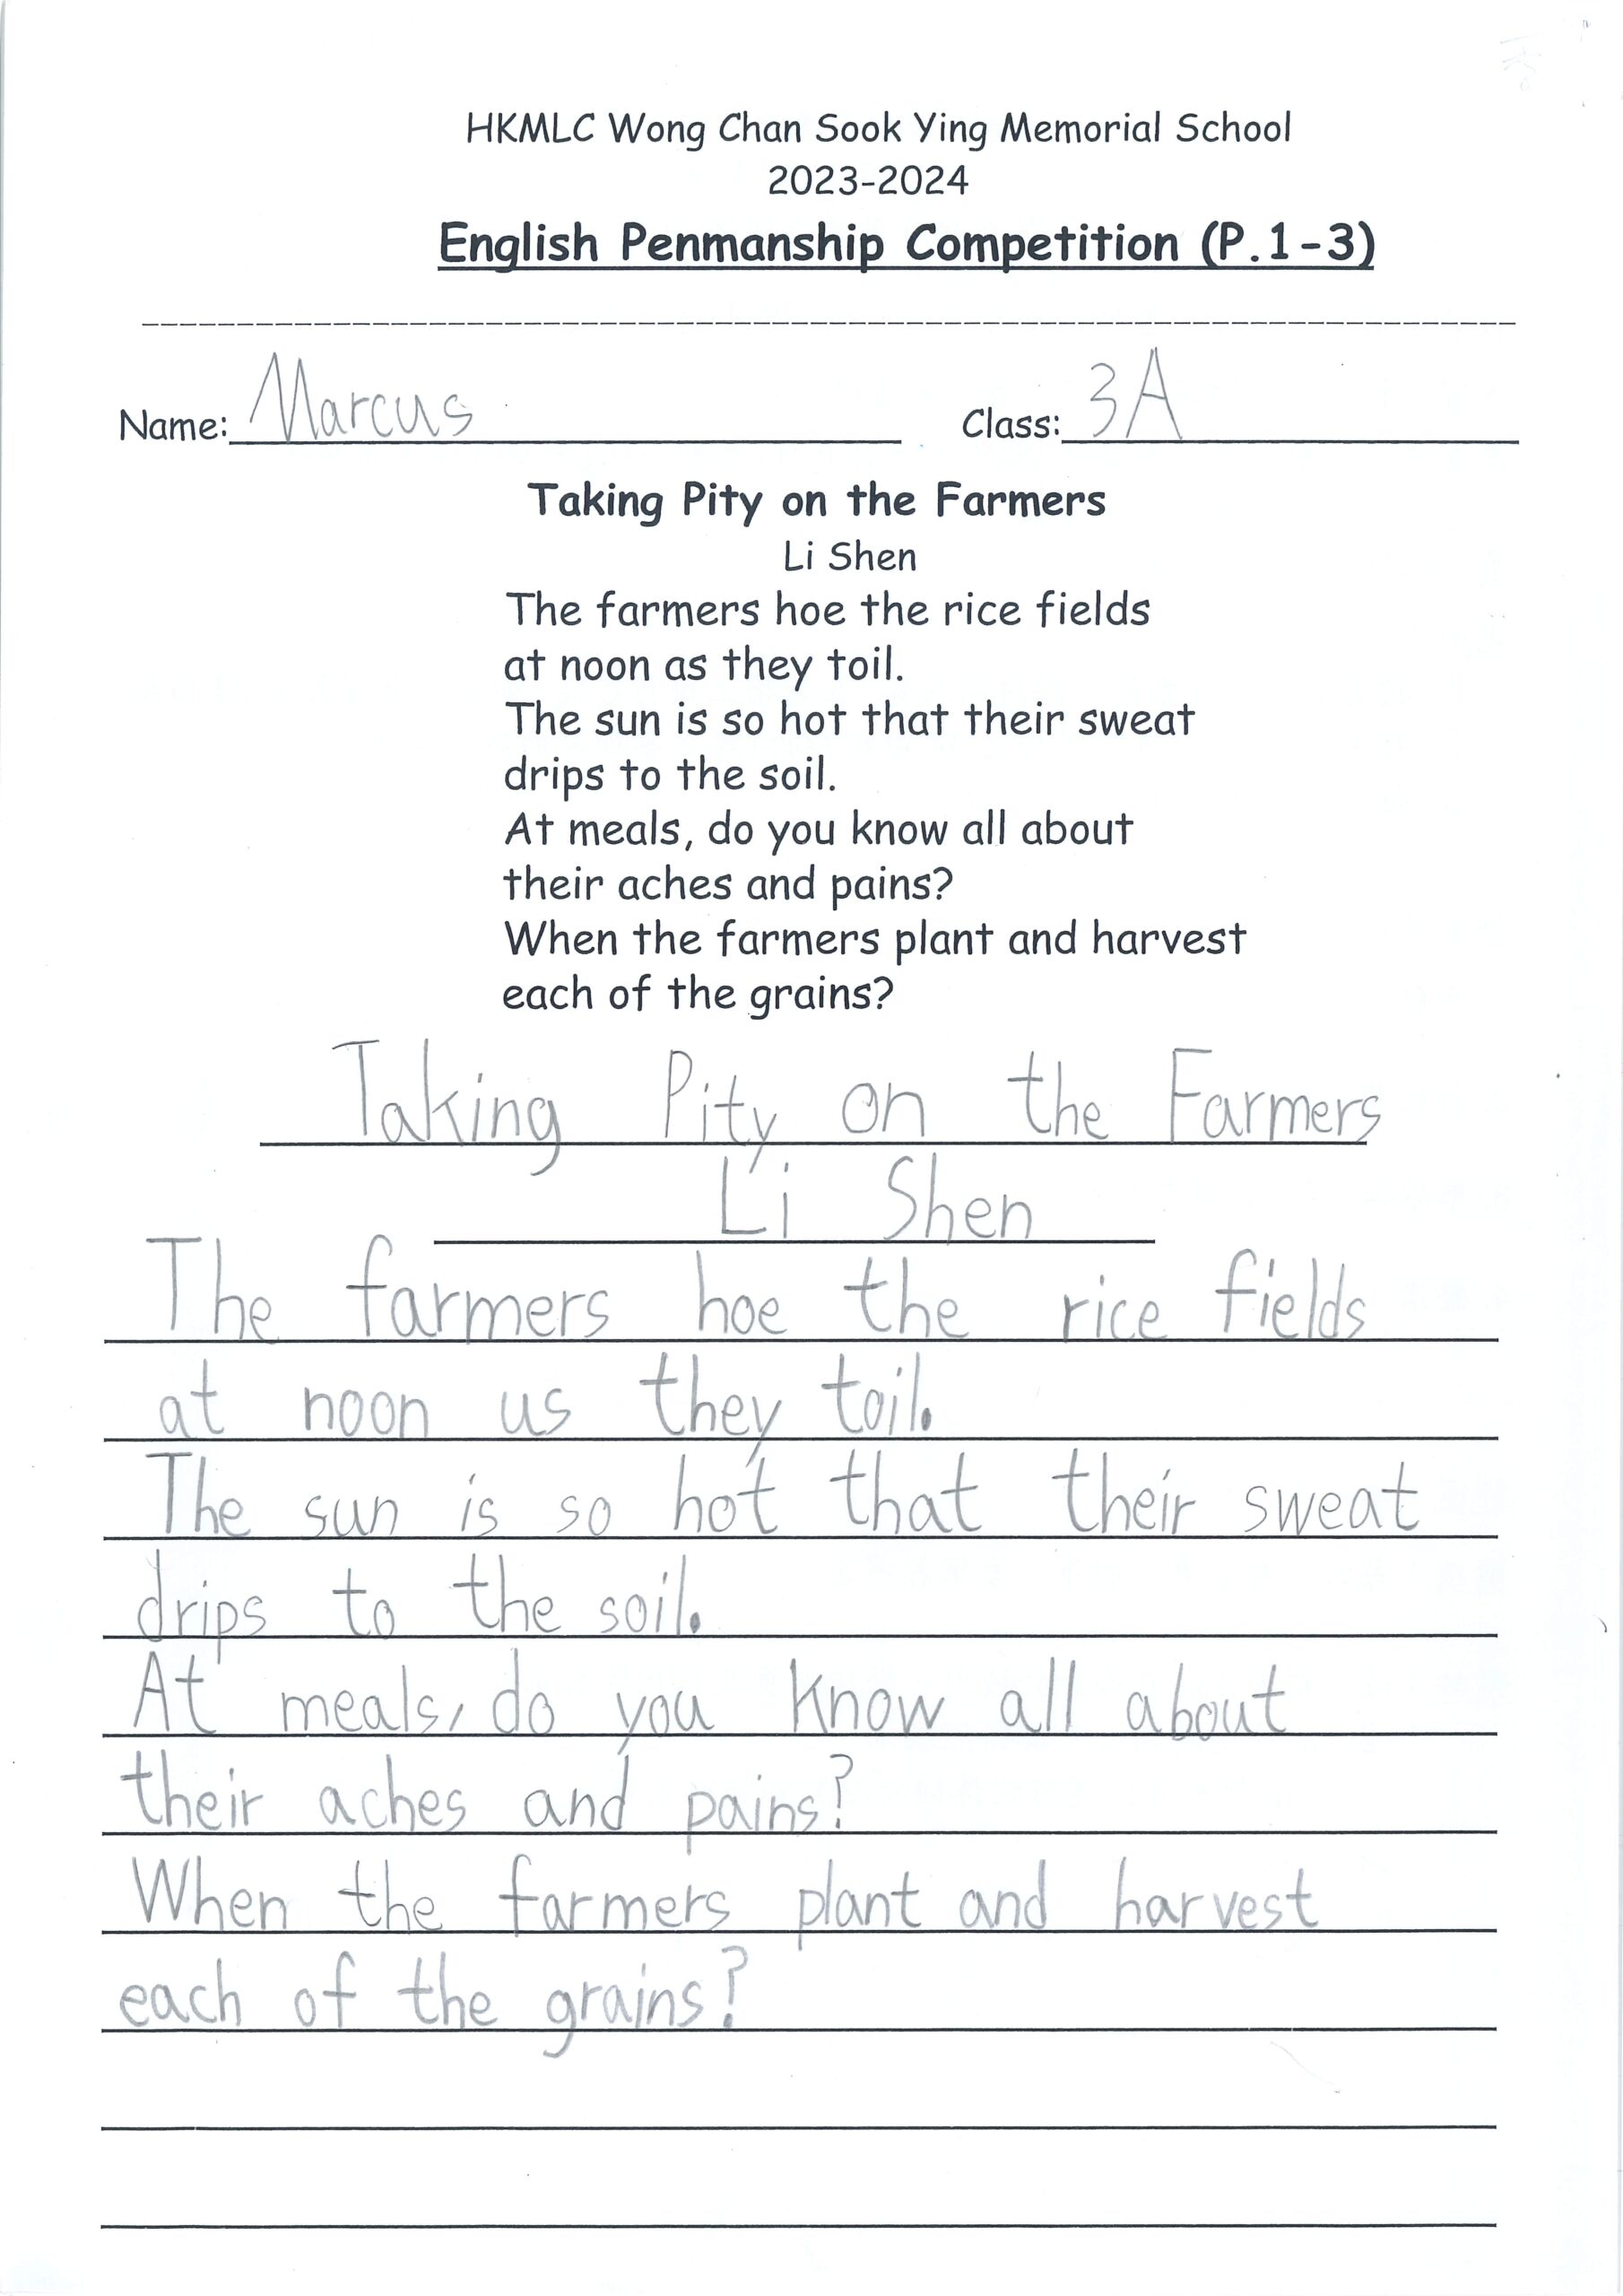 HKMLC Wong Chan Sook Ying Memorial School
2023-2024
English Penmanship Competition (P.1-3)
Name: Marcus Class: 3A
Taking Pity on the Farmers
Li Shen
The farmers hoe the rice fields
at noon as they toil.
The sun is so hot that their sweat
drips to the soil.
At meals, do you know all about
their aches and pains?
When the farmers plant and harvest
each of the grains?
Taking Pity on the Farmers
Li Shen
The farmers hoe the rice fields
at noon us they toil.
The sun is so hot that their sweat
drips to the soil.
At meals, do you know all about
their aches and pains?
When the farmers plant and harvest
each of the grains?